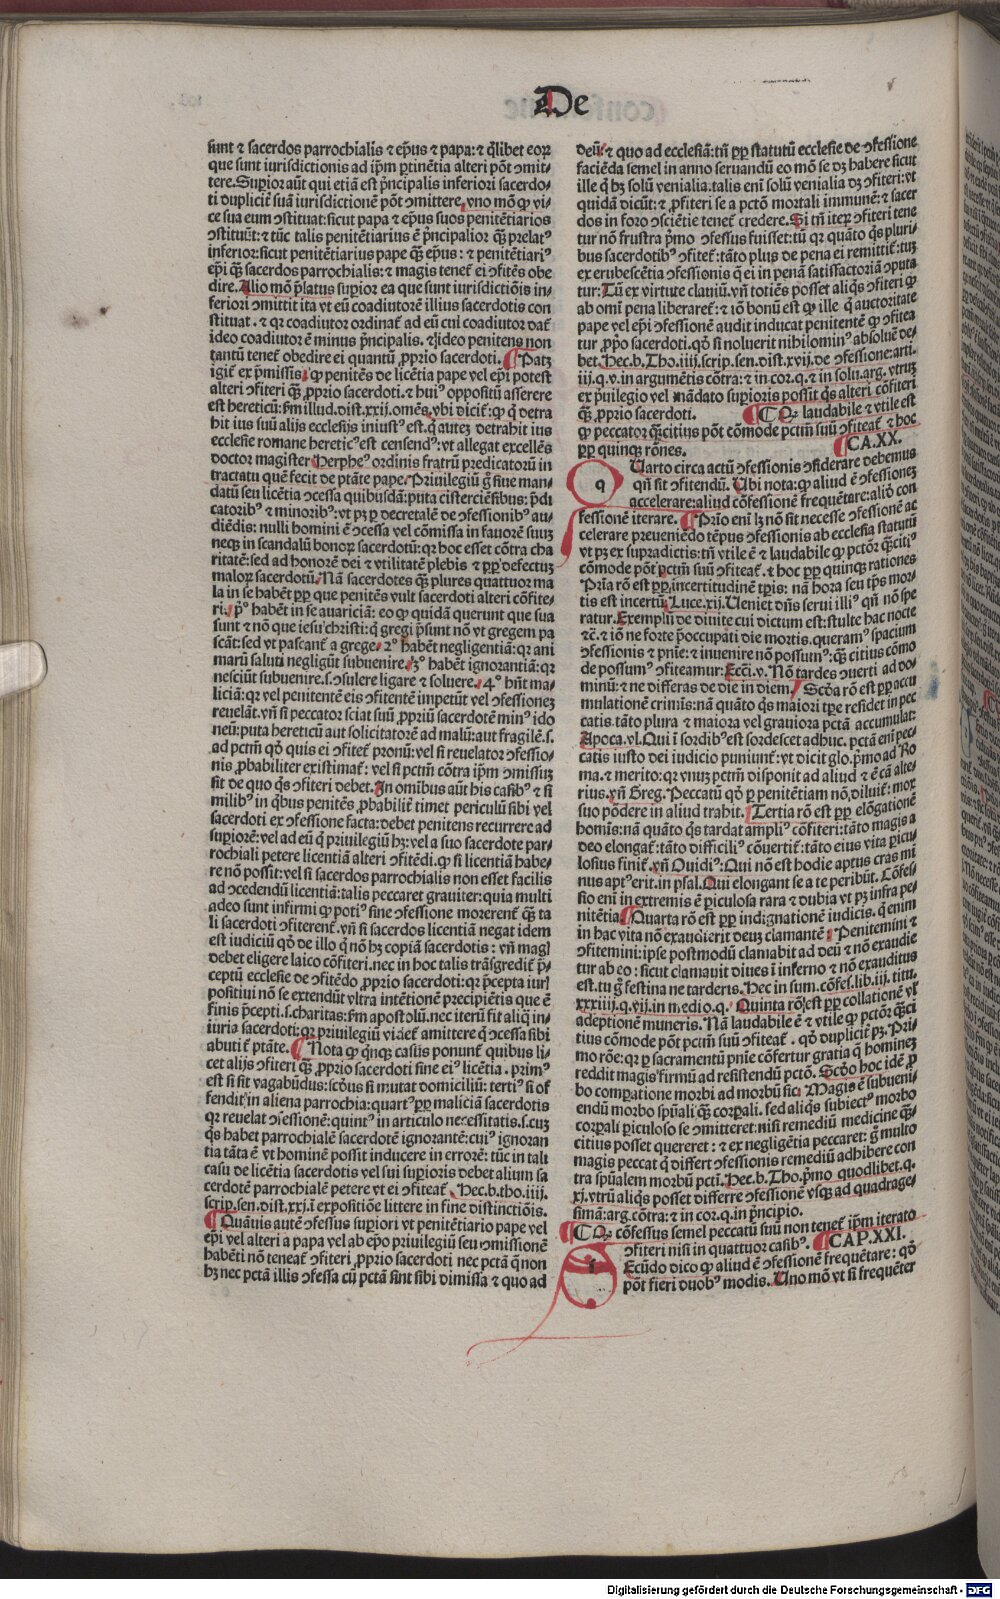 De
sunt ⁊ sacerdos parrochialis ⁊ ep̄us ⁊ papa: ⁊ q̄libet eoꝝ
que sunt iurisdictionis ad ip̄m ꝑtinētia alteri pōt ꝯmit-
tere. Supior aūt qui etiā est p̄ncipalis inferiori sacerdo-
ti duplicit̄ suā iurisdictionē pōt ꝯmittere, vno mō ꝙ vi-
ce sua eum ꝯstituat: sicut papa ⁊ ep̄us suos penitētiarios
ꝯstituūt: ⁊ tūc talis penitētiarius ē p̄ncipalior q̄ꝫ prelatꝰ
inferior: sicut penitētiarius pape q̄ꝫ ep̄us: ⁊ penitētiariꝰ
ep̄i q̄ꝫ sacerdos parrochialis: ⁊ magis tenet̄ ei ꝯfitēs obe
dire. Alio mō p̄latus supior ea que sunt iurisdictiōis in-
feriori ꝯmittit ita vt eū coadiutorē illius sacerdotis con
stituat. ⁊ qꝛ coadiutor ordinat̄ ad eū cui coadiutor dat̄
ideo coadiutor ē minus p̄ncipalis. ⁊ ideo penitens non
tantū tenet̄ obedire ei quantū ꝓprio sacerdoti. ¶ Patꝫ
igit̄ ex p̄missis, ꝙ penitēs de licētia pape vel ep̄i potest
alteri ꝯfiteri q̄ꝫ ꝓprio sacerdoti. ⁊ huiꝰ oppositū asserere
est hereticū: ẜm illud. dist. xxij. omēs. vbi dicit̄: ꝙ q̇ detra
hit ius suū alijs ecclesijs iniustꝰ est. q̇ autez detrahit ius
ecclesie romane hereticꝰ est censendꝰ: vt allegat excellēs
doctor magister Herpheꝰ ordinis fratrū predicatorū in
tractatu quē fecit de ptāte pape. Priuilegiū g̊ siue man-
datū seu licētia ꝯcessa quibusdā: puta cisterciēsibus: p̄di
catoribꝰ ⁊ minoribꝰ: vt pꝫ ꝑ decretalē de ꝯfessionibꝰ au-
diēdis: nulli homini ē ꝯcessa vel cōmissa in fauorē suuꝫ
neqꝫ in scandalū bonoꝝ sacerdotū: qꝛ hoc esset cōtra cha
ritatē: sed ad honorē dei ⁊ vtilitatē plebis ⁊ ꝓpꝰ defectuꝫ
maloꝝ sacerdotū. Nā sacerdotes q̄ꝫ plures quattuor ma
la in se habēt ꝑꝑ que penitēs vult sacerdoti alteri cōfite-
ri. pꝰ habēt in se auariciā: eo ꝙ quidā querunt que sua
sunt ⁊ nō que iesu christi: q̇ gregi p̄sunt nō vt gregem pa
scāt: sed vt pascant̄ a grege. 2ꝰ habēt negligentiā: qꝛ ani
marū saluti negligūt subuenire. 3ꝰ habēt ignorantiā: qꝛ
nesciūt subuenire. s. ꝯsulere ligare ⁊ soluere. 4ꝰ hn̄t ma-
liciā: qꝛ vel penitentē eis ꝯfitentē impetūt vel ꝯfessionez
reuelāt. vn̄ si peccator sciat suū ꝓpriū sacerdotē minꝰ ido
neū: puta hereticū aut solicitatorē ad malū: aut fragilē. s.
ad pctm̄ qꝺ quis ei ꝯfitet̄ pronū: vel si reuelator ꝯfessio-
nis ꝓbabiliter existimat̄: vel si pctm̄ cōtra ip̄m ꝯmissuꝫ
sit de quo q̇s ꝯfiteri debet. In omibus aūt his casibꝰ ⁊ si
milibꝰ in q̇bus penitēs ꝓbabilit̄ timet periculū sibi vel
sacerdoti ex ꝯfessione facta: debet penitens recurrere ad
supiorē: vel ad eū q̇ priuilegiū hꝫ: vel a suo sacerdote par-
rochiali petere licentiā alteri ꝯfitēdi. ꝙ si licentiā habe-
re nō possit: vel si sacerdos parrochialis non esset facilis
ad ꝯcedendū licentiā: talis peccaret grauiter: quia multi
adeo sunt infirmi ꝙ potiꝰ sine ꝯfessione morerent̄ q̄ꝫ ta
li sacerdoti ꝯfiterent̄. vn̄ si sacerdos licentiā negat idem
est iudiciū qꝺ de illo q̇ nō hꝫ copiā sacerdotis: vn̄ magꝭ
debet eligere laico cōfiteri. nec in hoc talis trāsgredit̄ p̄-
ceptū ecclesie de ꝯfitēdo ꝓprio sacerdoti: qꝛ p̄cepta iurꝭ
positiui nō se extendūt vltra intētionē precipiētis que ē
finis p̄cepti. s. charitas: ẜm apostolū. nec iterū fit aliq̇ in-
iuria sacerdoti: qꝛ priuilegiū videt̄ amittere q̇ ꝯcessa sibi
abutit̄ ptāte. ¶ Nota ꝙ q̇nqꝫ casus ponunt̄ quibus li-
cet alijs ꝯfiteri q̄ꝫ ꝓprio sacerdoti sine eiꝰ licētia. primꝰ
est si sit vagabūdus: scꝺus si mutat domiciliū: tertiꝰ si of
fendit̄ in aliena parrochia: quartꝰ ꝑꝑ maliciā sacerdotis
qꝛ reuelat ꝯfessionē: quintꝰ in articulo necessitatis. s. cuꝫ
q̇s habet parrochialē sacerdotē ignorantē: cuiꝰ ignoran
tia tāta ē vt hominē possit inducere in errorē: tūc in tali
casu de licētia sacerdotis vel sui supioris debet alium sa
cerdotē parrochialē petere vt ei ꝯfiteat̄. Hec. b. tho. iiij.
scrip. sen. dist. xxj. i expositiōe littere in fine distinctiōis.
¶ Quāuis autē ꝯfessus supiori vt penitētiario pape vel
ep̄i vel alteri a papa vel ab ep̄o priuilegiū seu ꝯmissionē
habēti nō teneat̄ ꝯfiteri ꝓprio sacerdoti nec pctā q̇ non
hꝫ nec pctā illis ꝯfessa cū pctā sint sibi dimissa ⁊ quo ad
deū: ⁊ quo ad ecclesiā: tn̄ ꝑꝑ statutū ecclesie de ꝯfessione
faciēda semel in anno seruandū eo mō se dꝫ habere sicut
ille q̇ hꝫ solū venialia. talis eni̅ solū venialia dꝫ ꝯfiteri: vt
quidā dicūt: ⁊ ꝓfiteri se a pctō mortali immunē: ⁊ sacer
dos in foro ꝯsciētie tenet̄ credere. Si tn̄ iteꝝ ꝯfiteri tene
tur nō frustra p̄mo ꝯfessus fuisset: tū qꝛ quāto q̇s pluri-
bus sacerdotibꝰ ꝯfitet̄: tāto plus de pena ei remittit̄: tuꝫ
ex erubescētia ꝯfessionis q̄ ei in penā satisfactoriā ꝯputa
tur: Tū ex virtute clauiū. vn̄ totiēs posset aliq̇s ꝯfiteri ꝙ
ab omi̅ pena liberaret̄: ⁊ iō bonū est ꝙ ille q̇ auctoritate
pape vel ep̄i ꝯfessionē audit inducat penitentē ꝙ ꝯfitea
tur ꝓpo sacerdoti. qꝺ si noluerit nihilominꝰ absoluē de-
bet. Hec. b. Tho. iiij. scrip. sen. dist. xvij. de ꝯfessione: arti.
iij. q. v. in argumētis cōtra: ⁊ in cor. q. ⁊ in solu. arg. vtruꝫ
ex p̄uilegio vel mādato supioris possit q̇s alteri cōfiteri
q̄ꝫ ꝓprio sacerdoti. ¶ CQꝛ laudabile ⁊ vtile est
ꝙ peccator q̄ꝫcitius pōt cōmode pctm̄ suū ꝯfiteat̄ ⁊ hoc
ꝑꝑ quinqꝫ rōnes. ¶ CA. XX.
q Uarto circa actū ꝯfessionis ꝯsiderare debemus
qn̄ sit ꝯfitendū. Ubi nota: ꝙ aliud ē ꝯfessionez
accelerare: aliud cōfessionē frequētare: aliō con
fessionē iterare. ¶ Prīo eni̅ lꝫ nō sit necesse ꝯfessionē ac
celerare preueniēdo tēpus ꝯfessionis ab ecclesia statutū
vt pꝫ ex supradictis: tn̄ vtile ē ⁊ laudabile ꝙ pctōr q̄ꝫcitiꝰ
cōmode pōt pctm̄ suū ꝯfiteat̄. ⁊ hoc ꝑꝑ quinqꝫ rationes
Prīa rō est ꝑꝑ incertitudinē tꝑis: nā hora seu tp̄s mor-
tis est incertū. Luce. xij. Ueniet dn̄s serui illiꝰ qn̄ nō spe
ratur. Exemplū de diuite cui dictum est: stulte hac nocte
⁊c̄. ⁊ iō ne forte p̄occupati die mortis. queramꝰ spacium
ꝯfessionis ⁊ pnīe: ⁊ inuenire nō possumꝰ: q̄ꝫ citius cōmo
de possumꝰ ꝯfiteamur. Ecci. v. Nō tardes ꝯuerti ad do-
minū: ⁊ ne differas de die in diem. Scꝺa rō est ꝑꝑ accu
mulationē crimis: nā quāto q̇s maiori tꝑe residet in pec
catis. tāto plura ⁊ maiora vel grauiora pctā accumulat:
Apoca. vl. Qui i̅ sordibꝰ est sordescet adhuc. pctā eni̅ pec-
catis iusto dei iudicio puniunt̄: vt dicit glo. p̄mo ad Ro
ma. ⁊ merito: qꝛ vnuꝫ pctm̄ disponit ad aliud ⁊ ē cā alte-
rius. vn̄ Greg. Peccatū qꝺ ꝑ penitētiam nō diluit̄: mox
suo pōdere in aliud trahit. Tertia rō est ꝑꝑ elōgationē
homis: nā quāto q̇s tardat ampliꝰ cōfiteri: tāto magis a
deo elongat̄: tāto difficiliꝰ cōuertit̄: tāto eius vita ꝑicu-
losius finit̄. vn̄ Ouidiꝰ: Qui nō est hodie aptus cras mi̅
nus aptꝰ erit. in psal. Qui elongant se a te peribūt. Cōfes-
sio eni̅ in extremis ē ꝑiculosa rara ⁊ dubia vt pꝫ infra pe-
nitētia. ¶ Quarta rō est ꝑꝑ indignationē iudicis. q̇ enim
in hac vita nō exaudierit deuꝫ clamantē: Penitemini ⁊
ꝯfitemini: ipse postmodū clamabit ad deū ⁊ nō exaudie
tur ab eo: sicut clamauit diues i̅ inferno ⁊ nō exauditus
est. tu g̊ festina ne tarderis. Hec in sum. cōfes. lib. iij. titu.
xxxiiij. q. vij. in medio. q. Quinta rō est ꝑꝑ collationē vꝉ
adeptionē muneris. Nā laudabile ē ⁊ vtile ꝙ pctōr q̄ꝫci
tius cōmode pōt pctm̄ suū ꝯfiteat̄. qꝺ duplicit̄ pꝫ. Pri-
mo rōe: qꝛ ꝑ sacramentū pnīe cōfertur gratia q̄ homineꝫ
reddit magis firmū ad resistendū pctō. Scꝺo hoc idē ꝓ
bo comparatione morbi ad morbū sic. Magis ē subueni-
endū morbo spūali q̄ꝫ corꝑali. sed aliq̇s subiectꝰ morbo
corꝑali ꝑiculoso se ꝯmitteret: nisi remediū medicine q̄ꝫ-
citius posset quereret: ⁊ ex negligētia peccaret: g̊ multo
magis peccat q̇ differt ꝯfessionis remediū adhibere con
tra spūalem morbū pcti̅. Hec. b. Tho. p̄mo quodlibet. q.
xj. vtrū aliq̇s posset differre ꝯfessionē vsqꝫ ad quadrage-
simā: arg. cōtra: ⁊ in cor. q. in p̄ncipio.
¶ CQꝛ cōfessus semel peccatū suū non tenet̄ ip̄m iterato
ꝯfiteri nisi in quattuor casibꝰ. ¶ CAP. XXI.
s Ecūdo dico ꝙ aliud ē ꝯfessionē frequētare: qꝺ
pōt fieri duobꝰ modis. Uno mō vt si frequēter
Digitalisierung gefördert durch die Deutsche Forschungsgemeinschaft - DFG